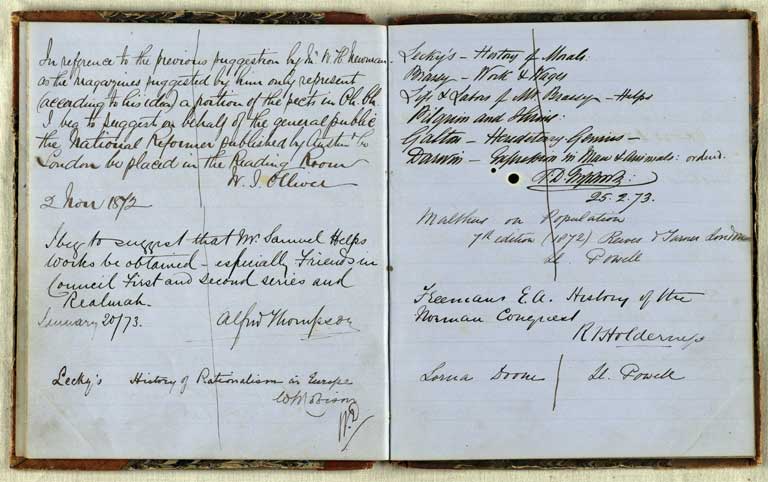 In reference to the previous suggestion by Mr W. H. Newman
as the magazines suggested by him only represent
(according to his idea) a portion of the sects in Ch. Ch.
I beg to suggest on behalf of the general public
the National Reformer published by Austin & Co
London be placed in the Reading Room
W. J. Olliver
2 Nov 1872
I beg to suggest that Mr Samuel Helps
works be obtained especially Friends in
Council First and second series and
Realmah.
January 20/73. Alfred Thompson
Lecky's History of Rationalism in Europe
Lecky's – History of Morals:
Brassy – Work & Wages
Life & Labors of Mr Brassy – Helps
Pilgrim and Shrine:
Galton – Hereditary Genius –
Darwin – Expression in Man & Animals: ordered.
25.2.73.
Malthus on Population
7th edition (1872) Reeves & Turner London
Ll. Powell
Freemans E.A. History of the
Norman Conquest
R Holderness
Lorna Doone Ll. Powell